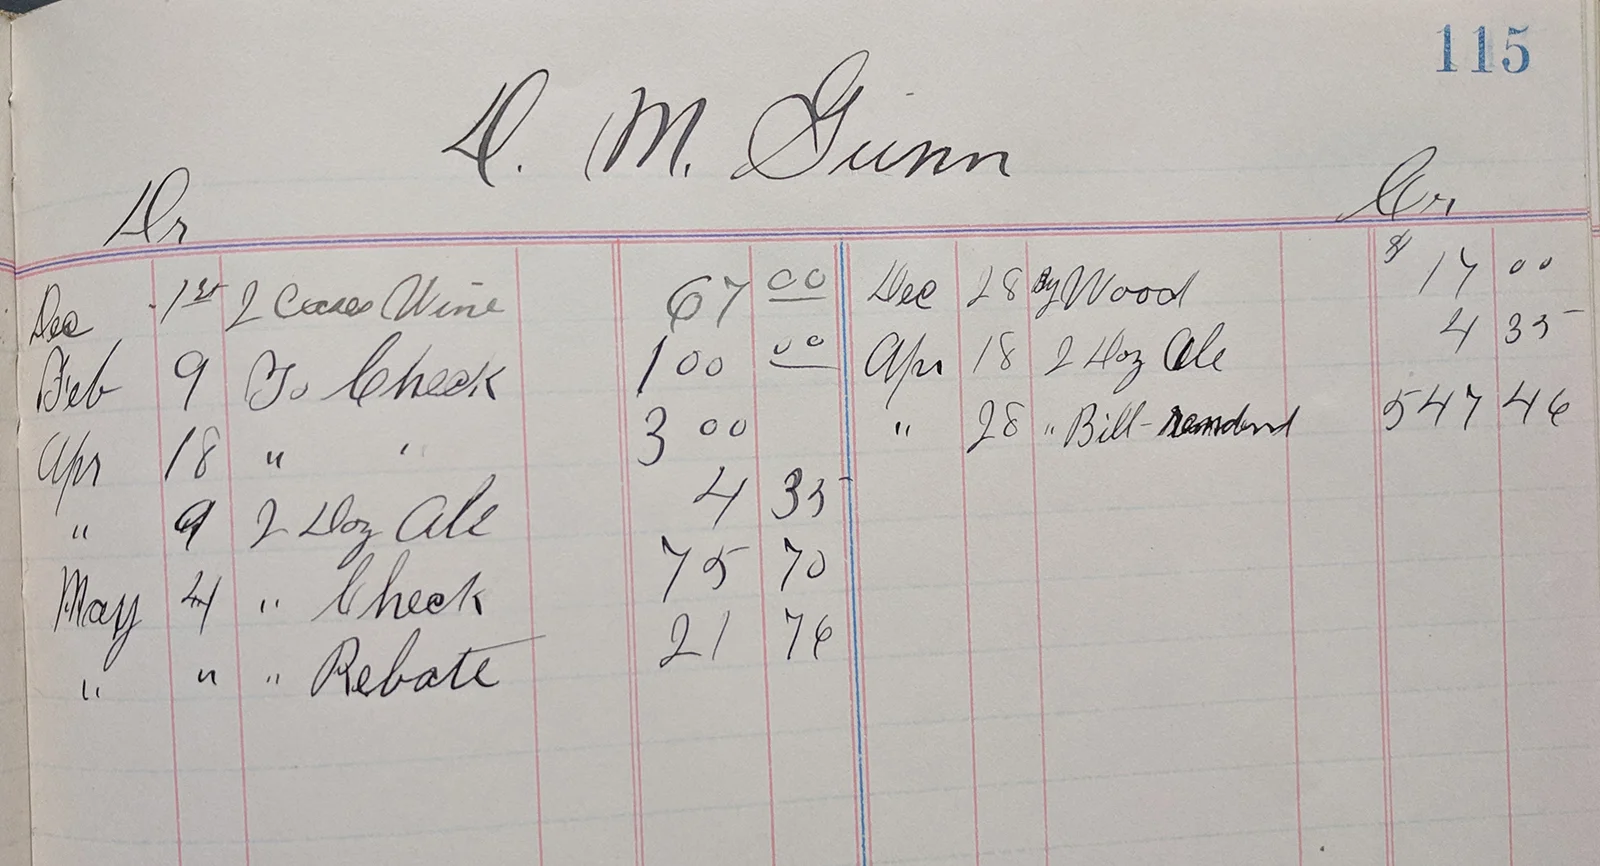 115
D. M. Gunn
Dr
Cr.
Dec 1st 2 Cases Wine 67 00
Feb 9 To Check 100 00
Apr 18 " " 3 00
" 9 2 Doz Ale 4 35
May 4 " Check 75 70
" " " Rebate 21 76
Dec 28 By Wood $ 17 00
Apr 18 2 Doz Ale 4 35
" 28 " Bill rendered 547 46